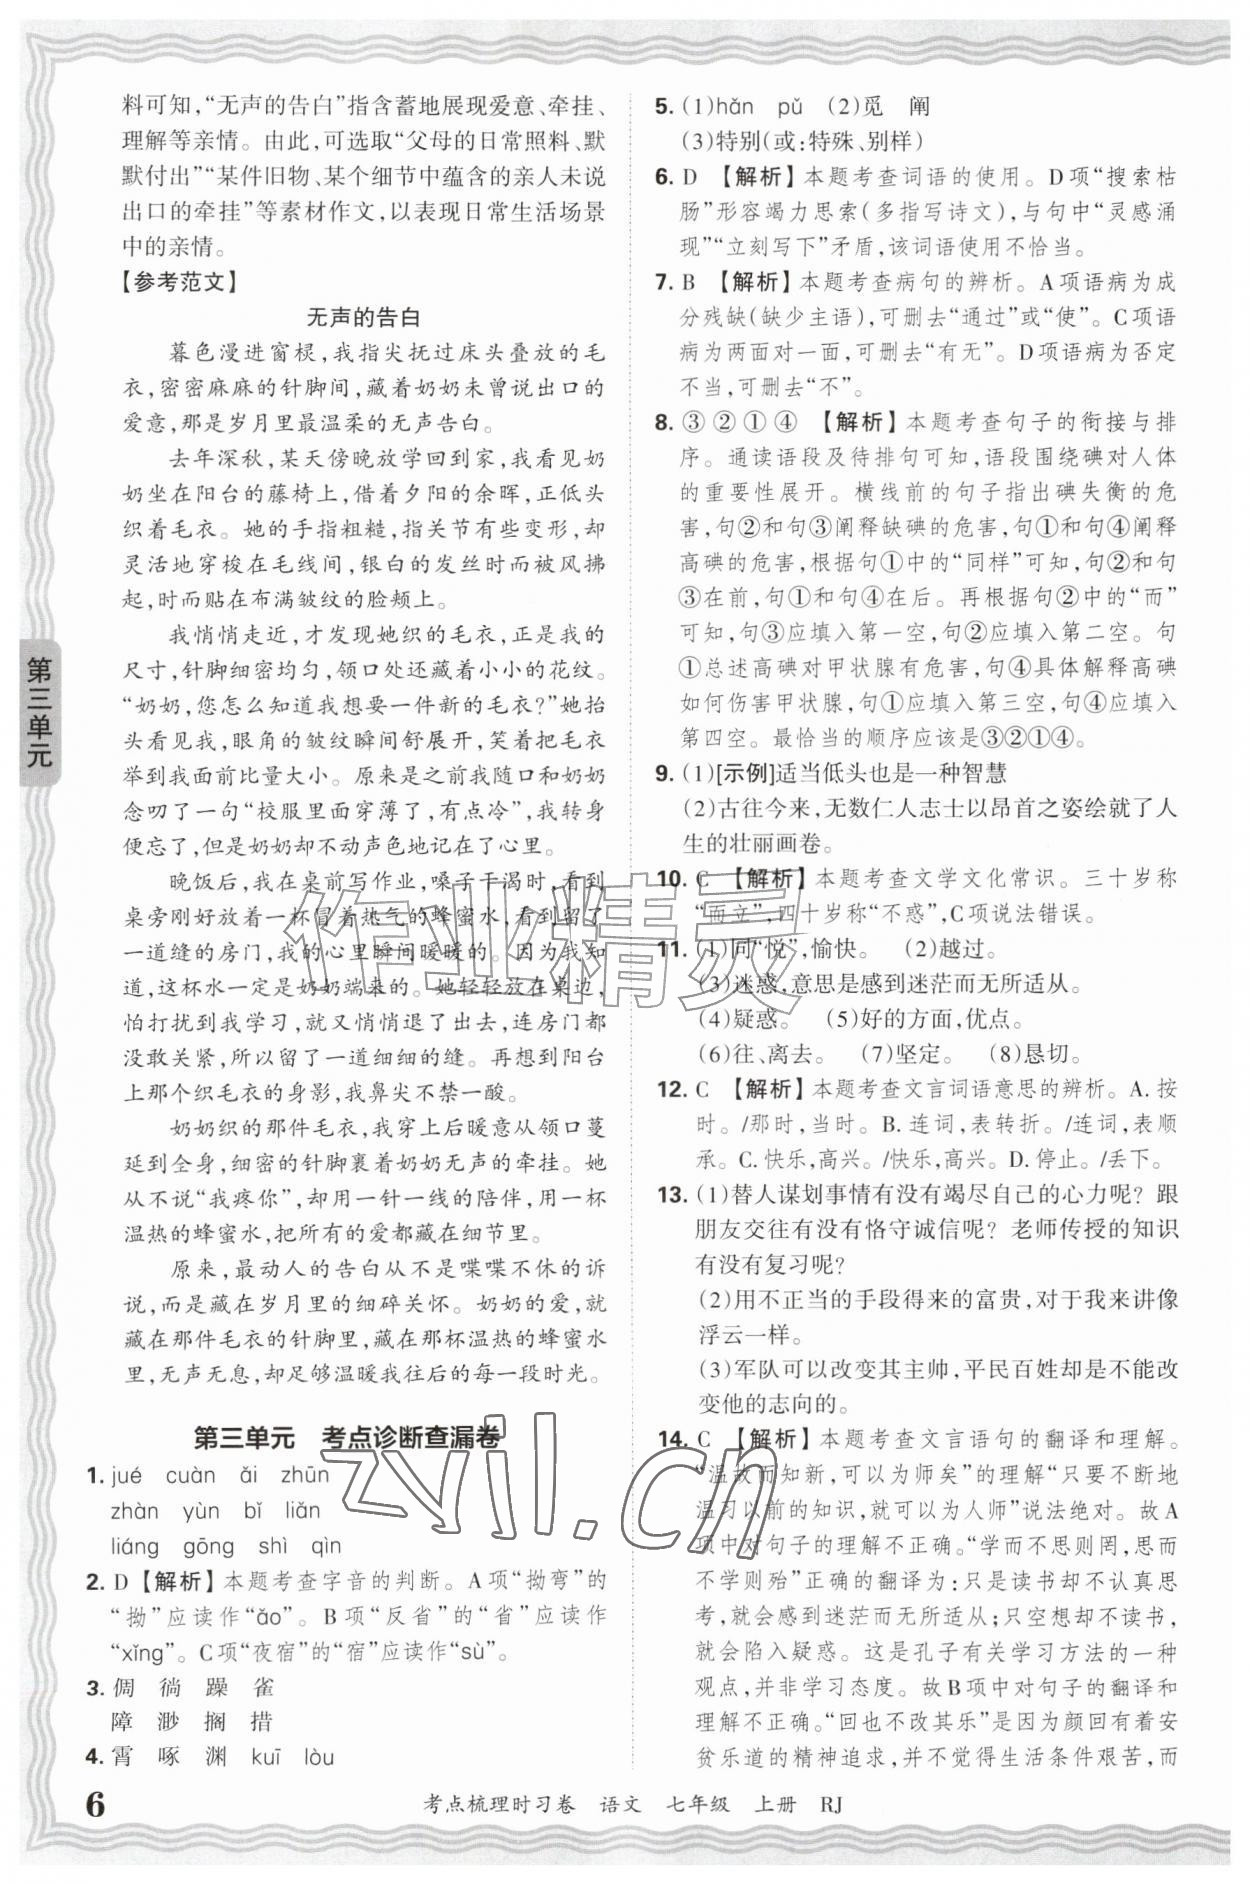 料可知，“无声的告白”指含蓄地展现爱意、牵挂、
理解等亲情。由此，可选取“父母的日常照料、默
默付出”“某件旧物、某个细节中蕴含的亲人未说
出口的牵挂”等素材作文，以表现日常生活场景
中的亲情。
【参考范文】
无声的告白
暮色漫进窗棂，我指尖抚过床头叠放的毛
衣，密密麻麻的针脚间，藏着奶奶未曾说出口的
爱意，那是岁月里最温柔的无声告白。
去年深秋，某天傍晚放学回到家，我看见奶
奶坐在阳台的藤椅上，借着夕阳的余晖，正低头
织着毛衣。她的手指粗糙，指关节有些变形，却
灵活地穿梭在毛线间，银白的发丝时而被风拂
起，时而贴在布满皱纹的脸颊上。
我悄悄走近，才发现她织的毛衣，正是我的
尺寸，针脚细密均匀，领口处还藏着小小的花纹。
“奶奶，您怎么知道我想要一件新的毛衣？”她抬
头看见我，眼角的皱纹瞬间舒展开，笑着把毛衣
举到我面前比量大小。原来是之前我随口和奶奶
念叨了一句“校服里面穿薄了，有点冷”，我转身
便忘了，但是奶奶却不动声色地记在了心里。
晚饭后，我在桌前写作业，嗓子干渴时，看到
桌旁刚好放着一杯冒着热气的蜂蜜水，看到留了
一道缝的房门，我的心里瞬间暖暖的。因为我知
道，这杯水一定是奶奶端来的。她轻轻放在桌边，
怕打扰到我学习，就又悄悄退了出去，连房门都
没敢关紧，所以留了一道细细的缝。再想到阳台
上那个织毛衣的身影，我鼻尖不禁一酸。
奶奶织的那件毛衣，我穿上后暖意从领口蔓
延到全身，细密的针脚裹着奶奶无声的牵挂。她
从不说“我疼你”，却用一针一线的陪伴，用一杯
温热的蜂蜜水，把所有的爱都藏在细节里。
原来，最动人的告白从不是喋喋不休的诉
说，而是藏在岁月里的细碎关怀。奶奶的爱，就
藏在那件毛衣的针脚里，藏在那杯温热的蜂蜜水
里，无声无息，却足够温暖我往后的每一段时光。
第三单元 考点诊断查漏卷
1. jué cuàn ǎi zhūn
zhàn yùn bǐ liǎn
liáng gōng shì qìn
2. D【解析】本题考查字音的判断。A项“拗弯”的
“拗”应读作“ǎo”。B项“反省”的“省”应读作
“xǐng”。C项“夜宿”的“宿”应读作“sù”。
3. 倜 徜 躁 雀
障 渺 搁 措
4. 霄 啄 渊 kuī lòu
5. (1)hǎn pǔ (2)觅 阐
(3)特别(或:特殊、别样)
6. D 【解析】本题考查词语的使用。D项“搜索枯
肠”形容竭力思索(多指写诗文)，与句中“灵感涌
现”“立刻写下”矛盾，该词语使用不恰当。
7. B 【解析】本题考查病句的辨析。A项语病为成
分残缺(缺少主语)，可删去“通过”或“使”。C项语
病为两面对一面，可删去“有无”。D项语病为否定
不当，可删去“不”。
8. ③②①④ 【解析】本题考查句子的衔接与排
序。通读语段及待排句可知，语段围绕碘对人体
的重要性展开。横线前的句子指出碘失衡的危
害，句②和句③阐释缺碘的危害，句①和句④阐释
高碘的危害，根据句①中的“同样”可知，句②和句
③在前，句①和句④在后。再根据句②中的“而”
可知，句③应填入第一空，句②应填入第二空。句
①总述高碘对甲状腺有危害，句④具体解释高碘
如何伤害甲状腺，句①应填入第三空，句④应填入
第四空。最恰当的顺序应该是③②①④。
9. (1)[示例]适当低头也是一种智慧
(2)古往今来，无数仁人志士以昂首之姿绘就了人
生的壮丽画卷。
10. C 【解析】本题考查文学文化常识。三十岁称
“而立”，四十岁称“不惑”，C项说法错误。
11. (1)同“悦”，愉快。 (2)越过。
(3)迷惑，意思是感到迷茫而无所适从。
(4)疑惑。 (5)好的方面，优点。
(6)往、离去。 (7)坚定。 (8)恳切。
12. C 【解析】本题考查文言词语意思的辨析。A.按
时。/那时，当时。B.连词，表转折。/连词，表顺
承。C.快乐，高兴。/快乐，高兴。D.停止。/丢下。
13. (1)替人谋划事情有没有竭尽自己的心力呢？跟
朋友交往有没有恪守诚信呢？老师传授的知识
有没有复习呢？
(2)用不正当的手段得来的富贵，对于我来讲像
浮云一样。
(3)军队可以改变其主帅，平民百姓却是不能改
变他的志向的。
14. C 【解析】本题考查文言语句的翻译和理解。
“温故而知新，可以为师矣”的理解“只要不断地
温习以前的知识，就可以为人师”说法绝对。故A
项中对句子的理解不正确。“学而不思则罔，思而
不学则殆”正确的翻译为：只是读书却不认真思
考，就会感到迷茫而无所适从；只空想却不读书，
就会陷入疑惑。这是孔子有关学习方法的一种
观点，并非学习态度。故B项中对句子的翻译和
理解不正确。“回也不改其乐”是因为颜回有着安
贫乐道的精神追求，并不觉得生活条件艰苦，而
第三单元
6
考点梳理时习卷 语文 七年级 上册 RJ
作业精灵
zyjl.cn